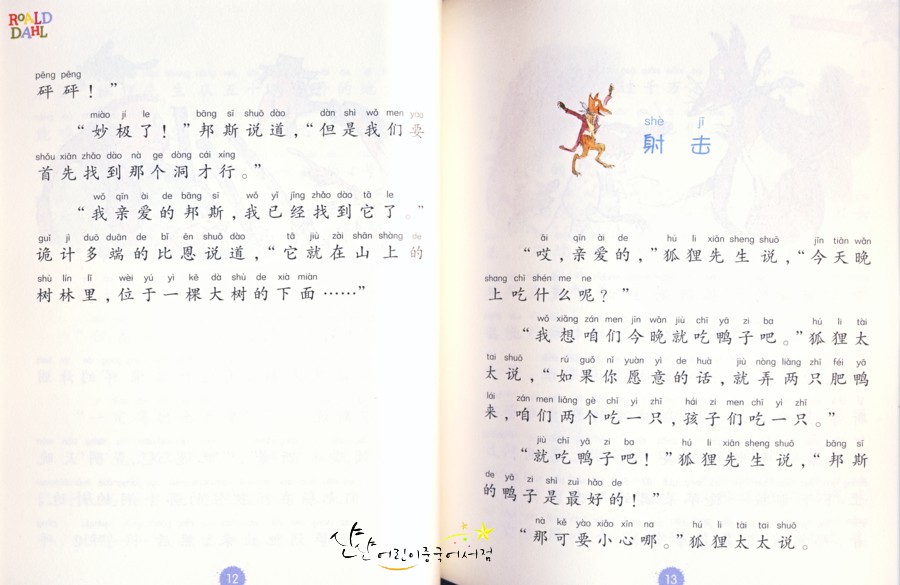 ROALD
DAHL
pēng pēng
砰砰！”
miào jí le bāng sī shuō dào dàn shì wǒ men yào
“妙极了！”邦斯说道，“但是我们要
shǒu xiān zhǎo dào nà ge dòng cái xíng
首先找到那个洞才行。”
wǒ qīn ài de bāng sī wǒ yǐ jīng zhǎo dào tā le
“我亲爱的邦斯，我已经找到它了。”
guǐ jì duō duān de bǐ ēn shuō dào tā jiù zài shān shàng de
诡计多端的比恩说道，“它就在山上的
shù lín lǐ wèi yú yì kē dà shù de xià miàn
树林里，位于一棵大树的下面……”
12
shè jī
射击
āi qīn ài de hú li xiān sheng shuō jīn tiān wǎn
“哎，亲爱的，”狐狸先生说，“今天晚
shang chī shén me ne
上吃什么呢？”
wǒ xiǎng zán men jīn wǎn jiù chī yā zi ba hú li tài
“我想咱们今晚就吃鸭子吧。”狐狸太
tai shuō rú guǒ nǐ yuàn yì de huà jiù nòng liǎng zhī féi yā
太说，“如果你愿意的话，就弄两只肥鸭
lái zán men liǎng gè chī yì zhī hái zi men chī yì zhī
来，咱们两个吃一只，孩子们吃一只。”
jiù chī yā zi ba hú li xiān sheng shuō bāng sī
“就吃鸭子吧！”狐狸先生说，“邦斯
de yā zi shì zuì hǎo de
的鸭子是最好的！”
nà kě yào xiǎo xīn na hú li tài tai shuō
“那可要小心哪。”狐狸太太说。
13
산산 어린이중국어서점